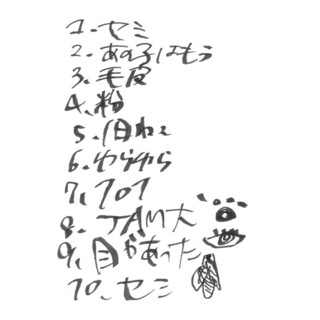 1. セミ
2. あの子はもう
3. 毛皮
4. 粉
5.
6. ゆらゆら
7. フロア
8. JAM大
9. 目があった
10. セミ